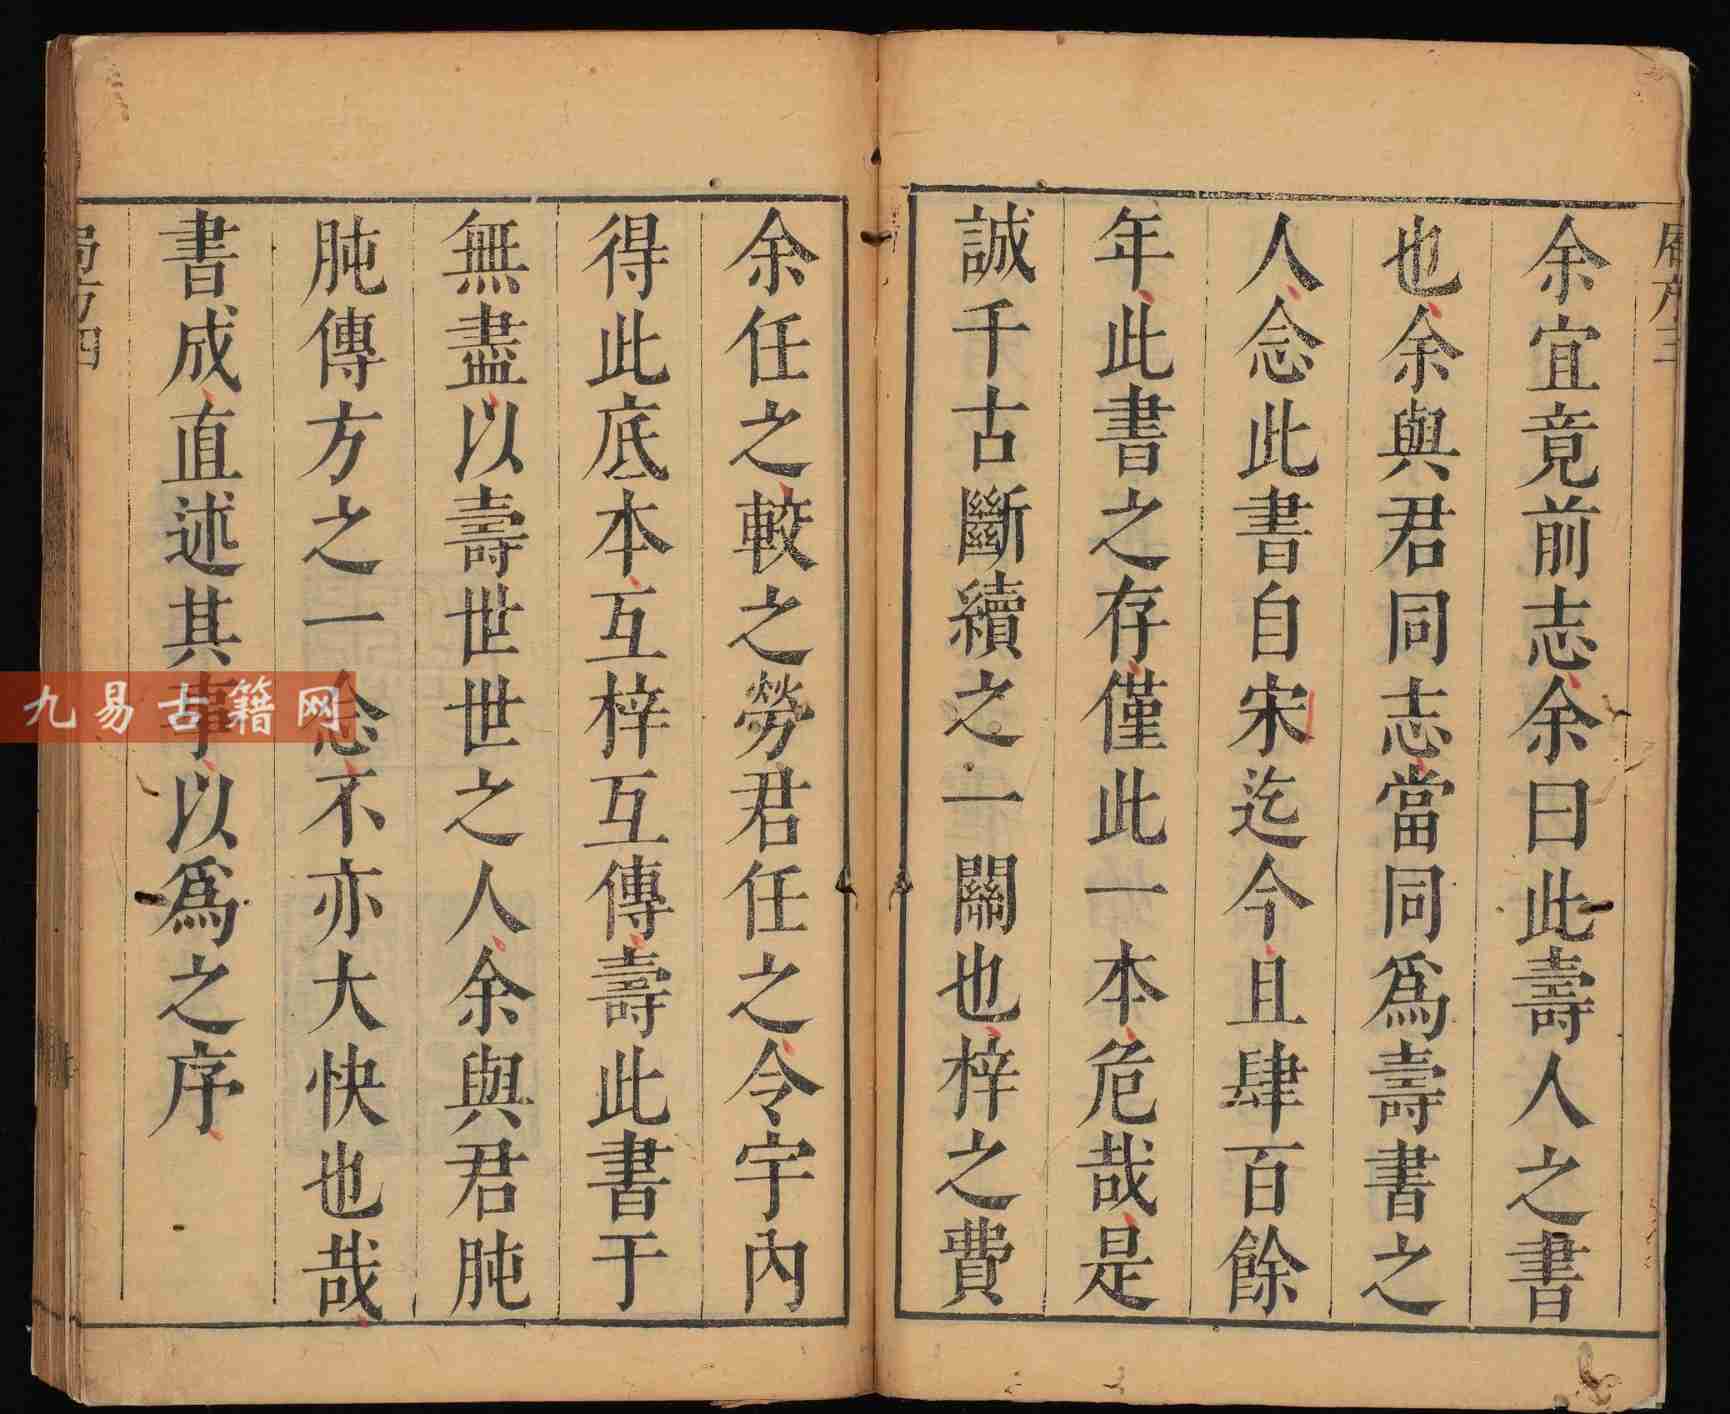 余宜竟前志余曰此壽人之書
也余與君同志當同爲壽書之
人念此書自宋迄今且肆百餘
年此書之存僅此一本危哉是
誠千古斷續之一關也梓之費
余任之較之勞君任之令宇內
得此底本互梓互傳壽此書于
無盡以壽世世之人余與君肫
肫傳方之一念不亦大快也哉
書成直述其事以爲之序
局方四
九易古籍网